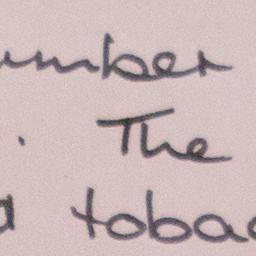 umber
. The
d tobac